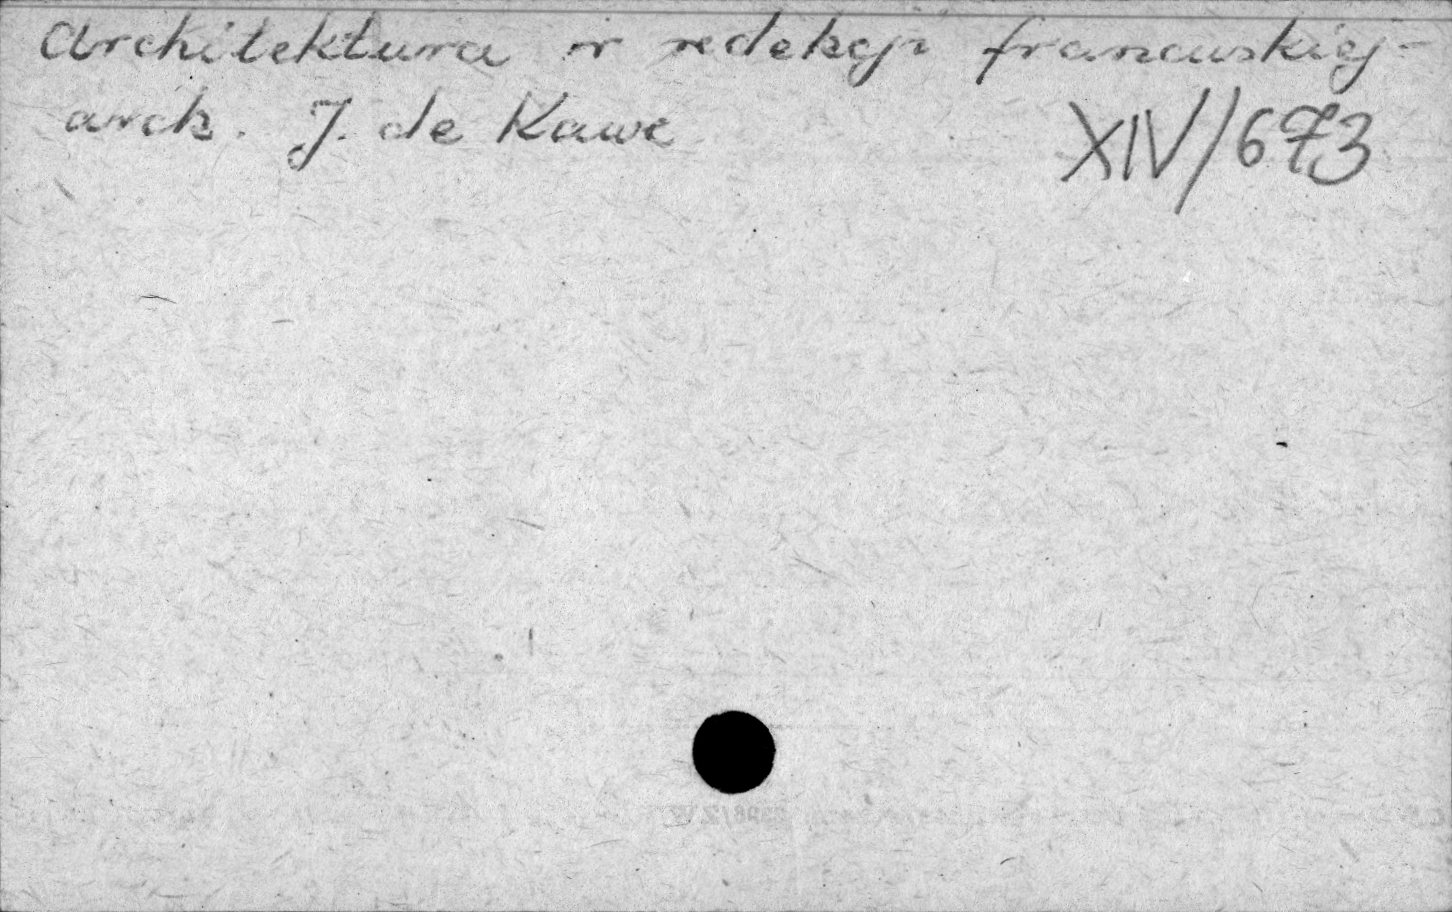 Architektura w redekcji francuskiej -
arch. J. de Kawe
XIV/673